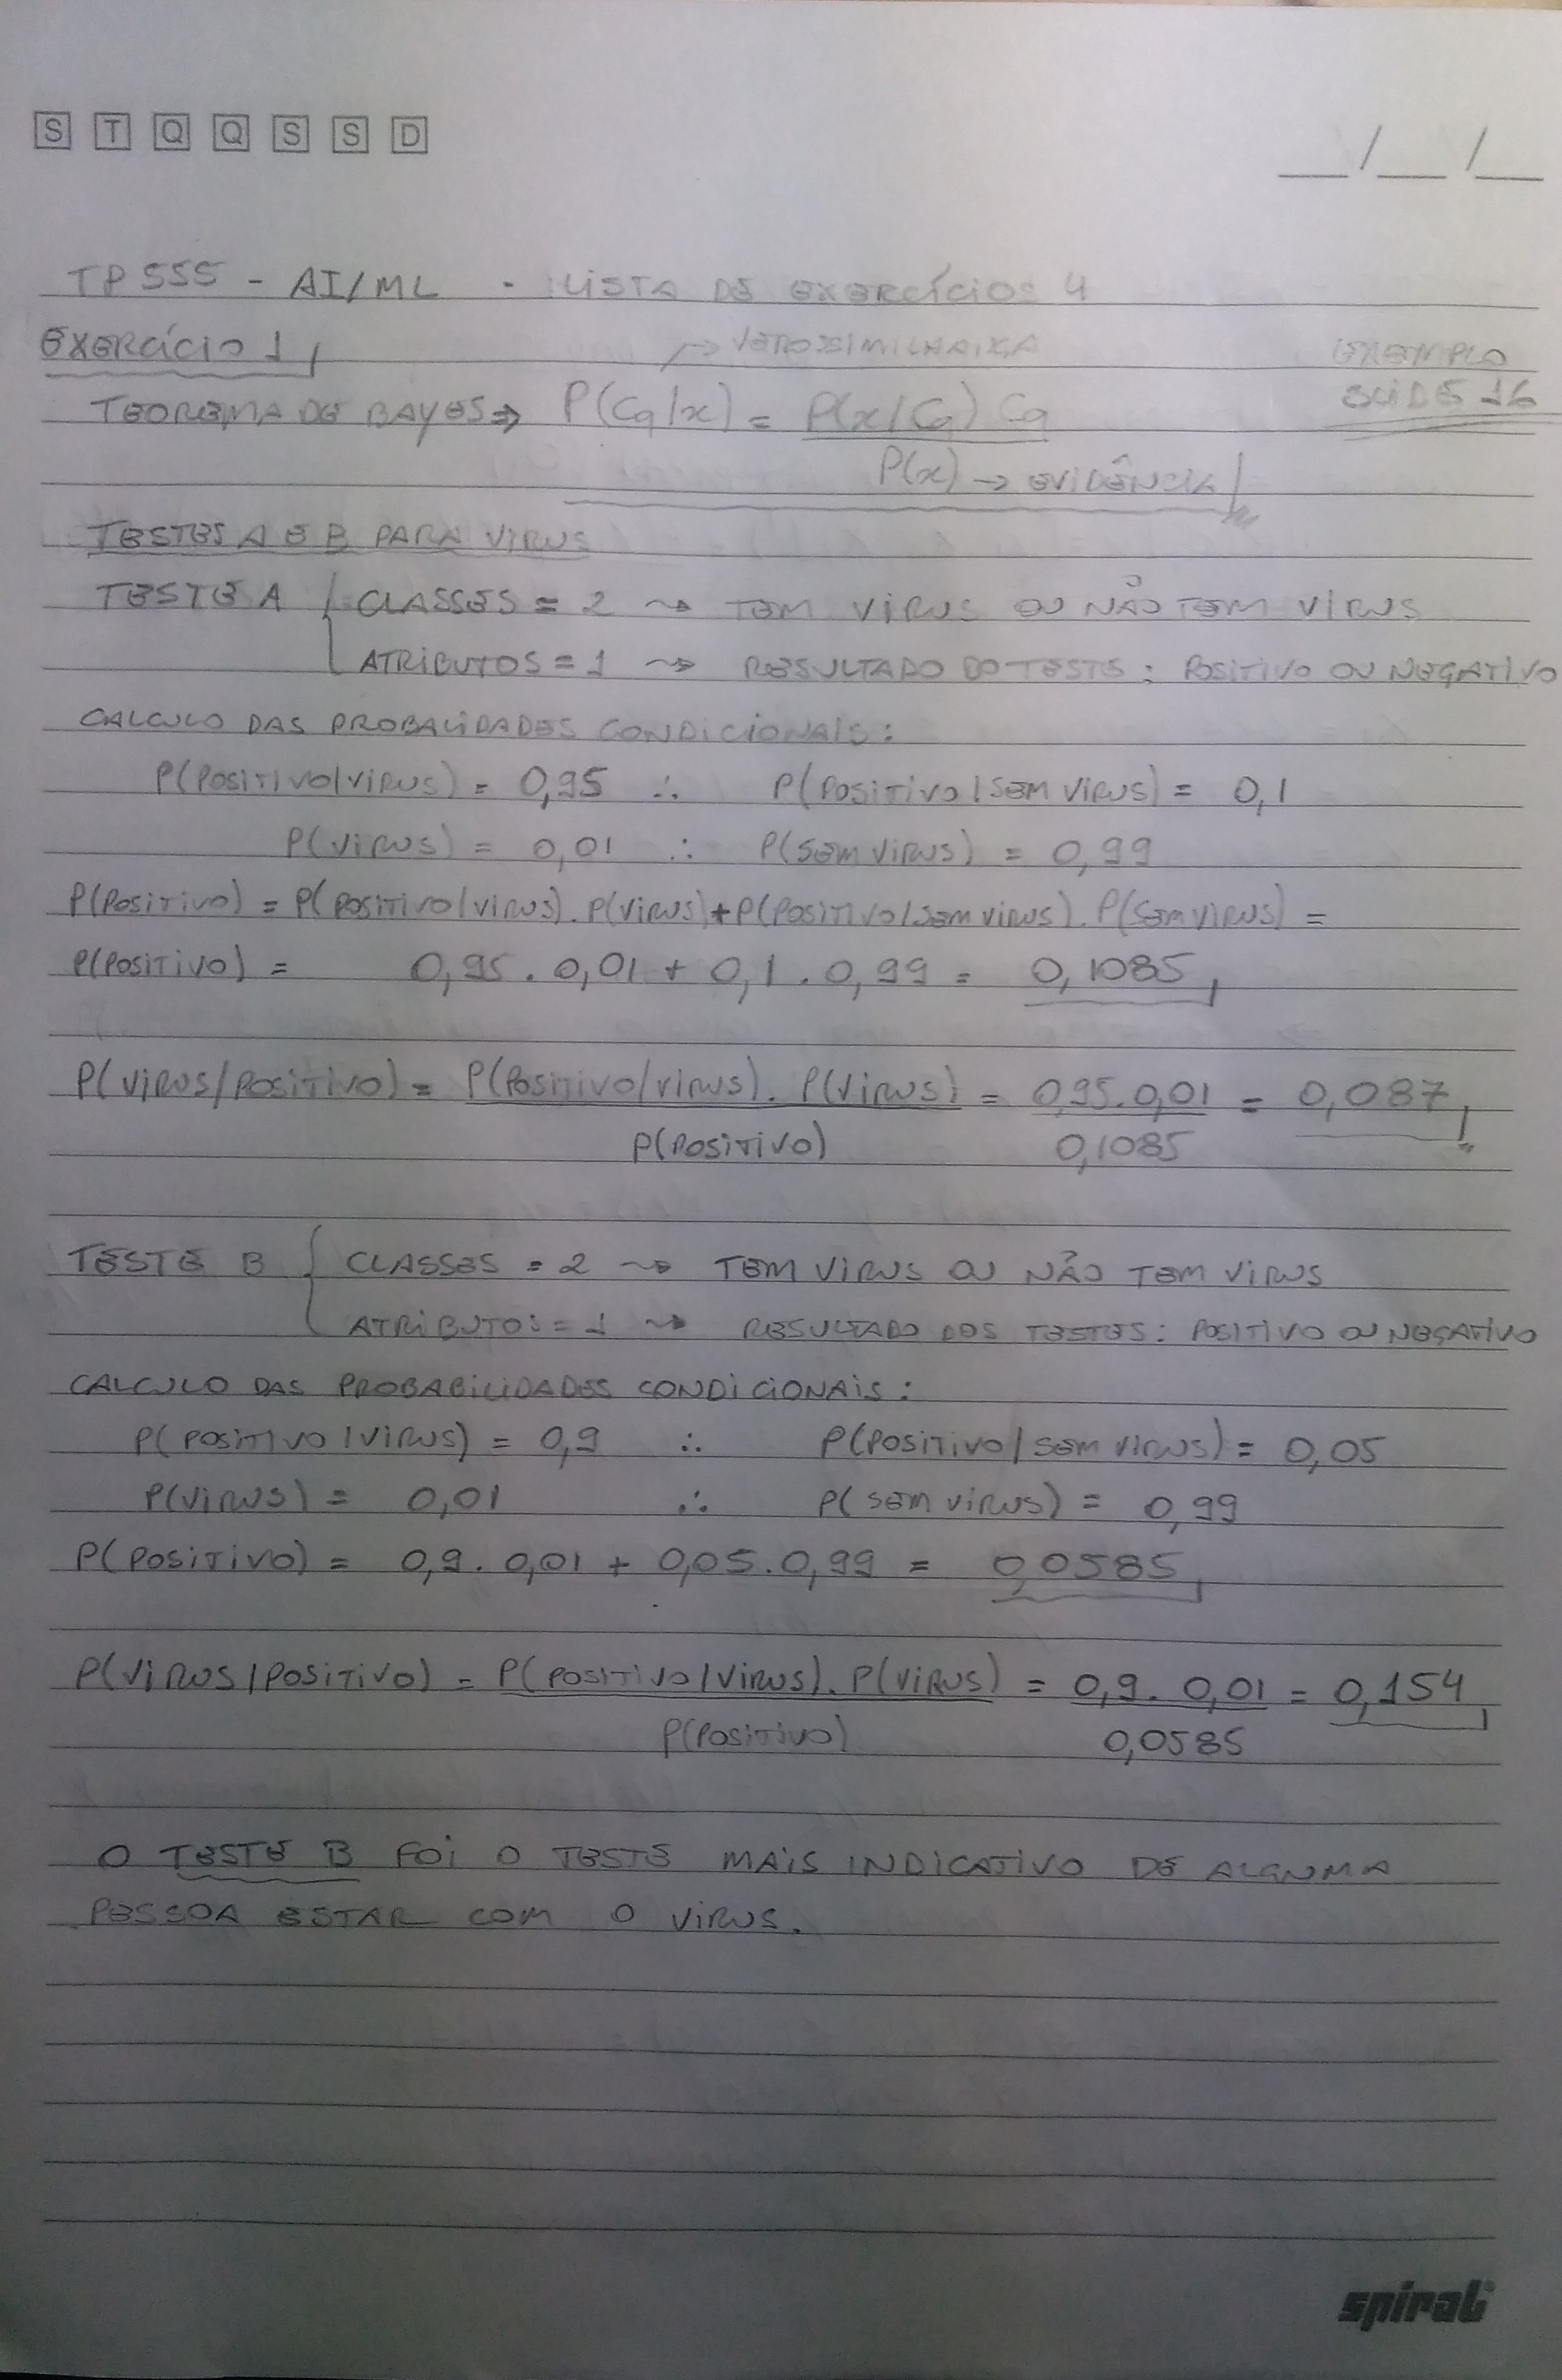 S T Q Q S S D
__/__/__
TP555 - AI/ML - LISTA DE EXERCÍCIOS 4
EXERCÍCIO 1
→ VEROSSIMILHANÇA
EXEMPLO
SLIDE 16
TEOREMA DE BAYES ⇒ P(Cq|x) = P(x|Cq) Cq
P(x) → EVIDÊNCIA
TESTES A E B PARA VIRUS
TESTE A { CLASSES = 2 ⇝ TEM VIRUS OU NÃO TEM VIRUS
ATRIBUTOS = 1 ⇝ RESULTADO DO TESTE: POSITIVO OU NEGATIVO
CALCULO DAS PROBALIDADES CONDICIONAIS:
P(POSITIVO|VIRUS) = 0,95 ∴ P(POSITIVO|SEM VIRUS) = 0,1
P(VIRUS) = 0,01 ∴ P(SEM VIRUS) = 0,99
P(POSITIVO) = P(POSITIVO|VIRUS). P(VIRUS)+P(POSITIVO/SEM VIRUS). P(SEM VIRUS) =
P(POSITIVO) = 0,95 . 0,01 + 0,1 . 0,99 = 0,1085
P(VIRUS/POSITIVO) = P(POSITIVO/VIRUS). P(VIRUS) = 0,95.0,01 = 0,087
P(POSITIVO) 0,1085
TESTE B { CLASSES = 2 ⇝ TEM VIRUS OU NÃO TEM VIRUS
ATRIBUTOS = 1 ⇝ RESULTADO DOS TESTES: POSITIVO OU NEGATIVO
CALCULO DAS PROBABILIDADES CONDICIONAIS:
P(POSITIVO|VIRUS) = 0,9 ∴ P(POSITIVO/SEM VIRUS) = 0,05
P(VIRUS) = 0,01 ∴ P(SEM VIRUS) = 0,99
P(POSITIVO) = 0,9 . 0,01 + 0,05 . 0,99 = 0,0585
P(VIRUS|POSITIVO) = P(POSITIVO|VIRUS). P(VIRUS) = 0,9 . 0,01 = 0,154
P(POSITIVO) 0,0585
O TESTE B FOI O TESTE MAIS INDICATIVO DE ALGUMA
PESSOA ESTAR COM O VIRUS.
spiral